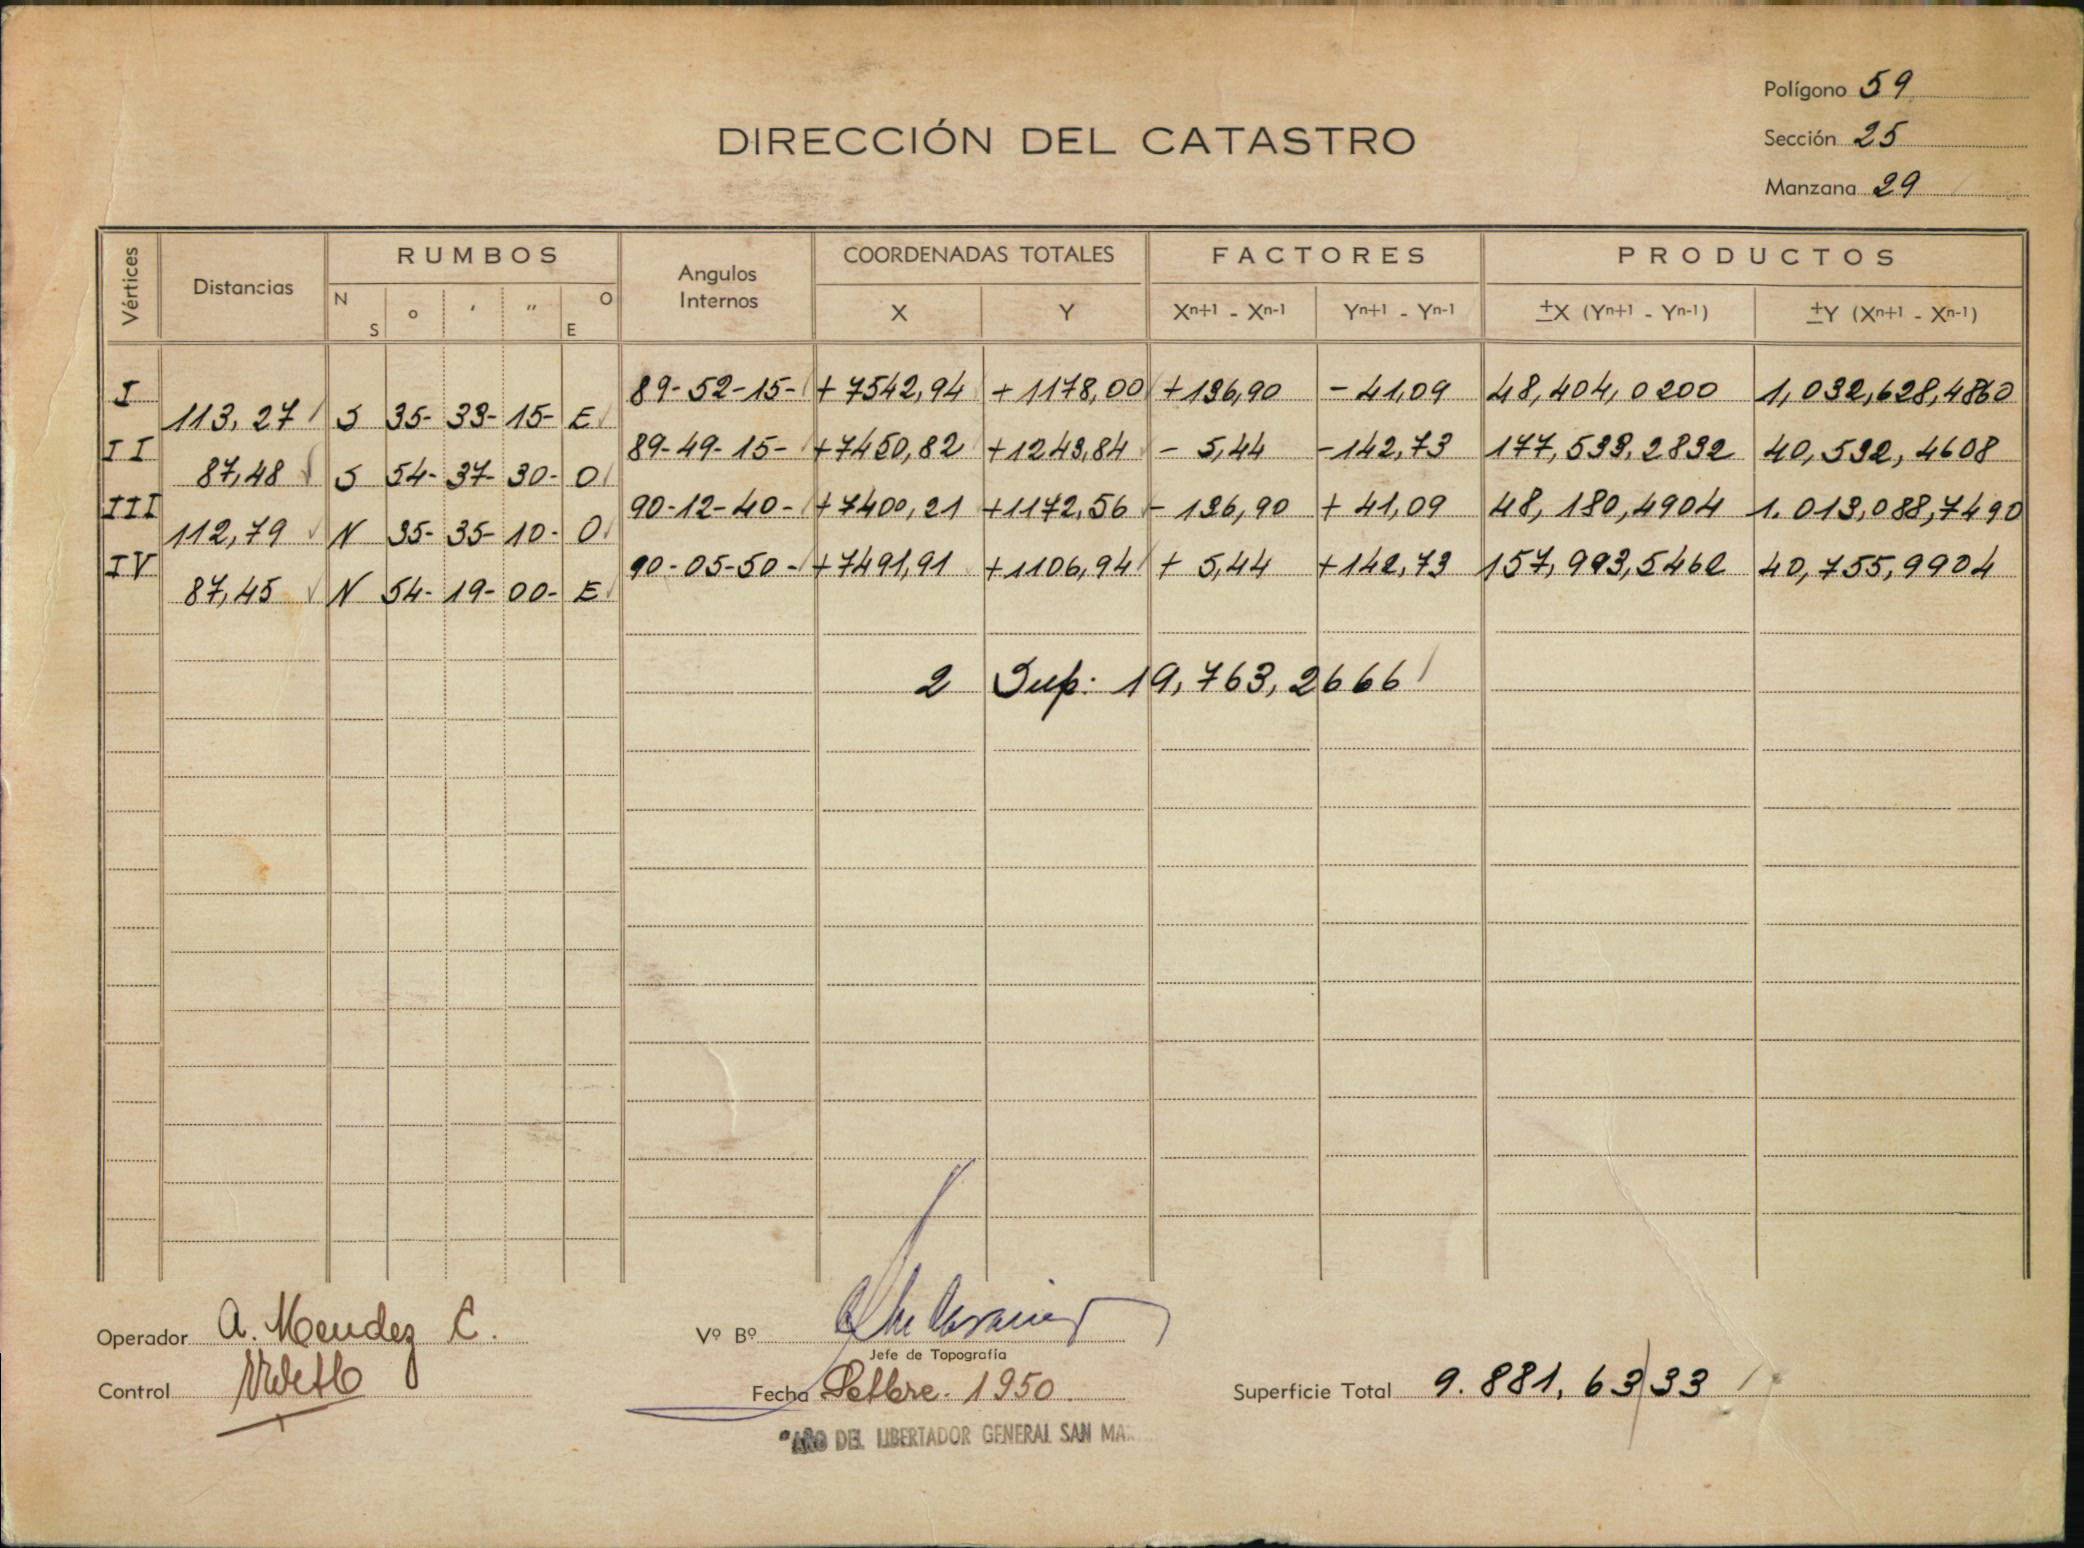 Polígono 59
DIRECCIÓN DEL CATASTRO
Sección 25
Manzana 29
Vértices Distancias RUMBOS Angulos Internos COORDENADAS TOTALES FACTORES PRODUCTOS
N S o ' " O E X Y Xn+1 - Xn-1 Yn+1 - Yn-1 ±X (Yn+1 - Yn-1) ±Y (Xn+1 - Xn-1)
I 89-52-15- +7542,94 +1178,00 +136,90 -41,09 48,404,0200 1,032,628,4860
113,27 S 35- 33- 15- E
II 89-49-15- +7450,82 +1243,84 - 5,44 -142,73 177,533,2832 40,532,4608
87,48 S 54- 37- 30- O
III 90-12-40- +7400,21 +1172,56 - 136,90 + 41,09 48,180,4904 1.013,088,7490
112,79 N 35- 35- 10- O
IV 90-05-50- +7491,91 +1106,94 + 5,44 +142,73 157,993,5462 40,755,9904
87,45 N 54- 19- 00- E
2 Sup: 19,763,2666
Operador A. Mendez C.
Vº Bº
Jefe de Topografía
Control
Fecha Setbre. 1950
Superficie Total 9.881,6333
"AÑO DEL LIBERTADOR GENERAL SAN MA